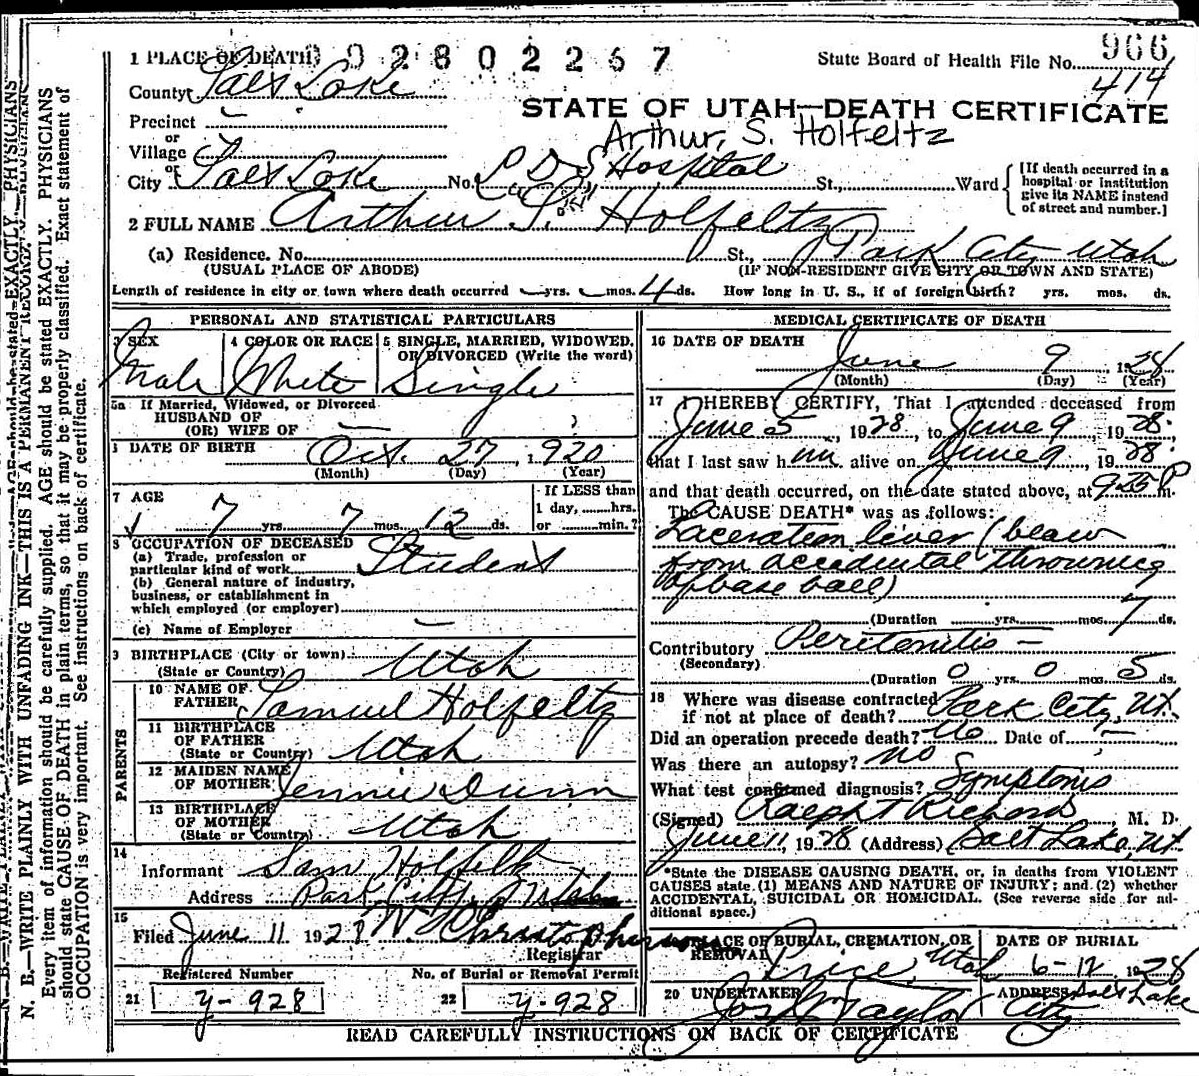 1 PLACE OF DEATH
0 2 8 0 2 2 6 7
State Board of Health File No. 966
414
County Salt Lake
STATE OF UTAH—DEATH CERTIFICATE
Precinct
Arthur, S. Holfeltz
or
Village
or
City Salt Lake No. L D S Hospital St., Ward
[If death occurred in a
hospital or institution
give its NAME instead
of street and number.]
2 FULL NAME Arthur S. Holfeltz
(a) Residence. No. St., Park City Utah
(USUAL PLACE OF ABODE) (IF NON-RESIDENT GIVE CITY OR TOWN AND STATE)
Length of residence in city or town where death occurred - yrs. - mos. 4 ds. How long in U. S., if of foreign birth? yrs. mos. ds.
PERSONAL AND STATISTICAL PARTICULARS
3 SEX Male
4 COLOR OR RACE White
5 SINGLE, MARRIED, WIDOWED,
OR DIVORCED (Write the word)
Single
5a If Married, Widowed, or Divorced
HUSBAND OF
(OR) WIFE OF
DATE OF BIRTH Oct. 27, 1920
(Month) (Day) (Year)
7 AGE
7 yrs. 7 mos. 12 ds.
If LESS than
1 day, hrs.
or min.?
8 OCCUPATION OF DECEASED
(a) Trade, profession or
particular kind of work Student
(b) General nature of industry,
business, or establishment in
which employed (or employer)
(c) Name of Employer
9 BIRTHPLACE (City or town)
(State or Country) Utah
PARENTS
10 NAME OF
FATHER Samuel Holfeltz
11 BIRTHPLACE
OF FATHER
(State or Country) Utah
12 MAIDEN NAME
OF MOTHER Jennie Dunn
13 BIRTHPLACE
OF MOTHER
(State or Country) Utah
14
Informant Sam Holfeltz
Address Park City, Utah
15
Filed June 11 1928 Christopherson
Registrar
Registered Number No. of Burial or Removal Permit
21 y-928 22 y-928
MEDICAL CERTIFICATE OF DEATH
16 DATE OF DEATH
June 9 1928
(Month) (Day) (Year)
17 I HEREBY CERTIFY, That I attended deceased from
June 5, 1928, to June 9, 1928.
that I last saw him alive on June 9, 1928.
and that death occurred, on the date stated above, at 9 25 P m.
The CAUSE DEATH* was as follows:
Laceration liver (blow
from accidental throwing
of base ball)
(Duration yrs. mos. 7 ds.
Contributory Peritonitis -
(Secondary)
(Duration 0 yrs. 0 mos. 5 ds.
18 Where was disease contracted
if not at place of death? Park City, Ut.
Did an operation precede death? No Date of -
Was there an autopsy? no
What test confirmed diagnosis? Symptoms
(Signed) Ralph T Richards, M. D.
June 11, 1928 (Address) Salt Lake, Ut.
*State the DISEASE CAUSING DEATH, or, in deaths from VIOLENT
CAUSES state (1) MEANS AND NATURE OF INJURY; and (2) whether
ACCIDENTAL, SUICIDAL OR HOMICIDAL. (See reverse side for ad-
ditional space.)
PLACE OF BURIAL, CREMATION, OR
REMOVAL Price, Utah
DATE OF BURIAL
6-12 1928
20 UNDERTAKER
Jos Wm Taylor
ADDRESS Salt Lake
City
READ CAREFULLY INSTRUCTIONS ON BACK OF CERTIFICATE
N. B.—WRITE PLAINLY WITH UNFADING INK—THIS IS A PERMANENT RECORD.
Every item of information should be carefully supplied. AGE should be stated EXACTLY. PHYSICIANS
should state CAUSE OF DEATH in plain terms, so that it may be properly classified. Exact statement of
OCCUPATION is very important. See instructions on back of certificate.